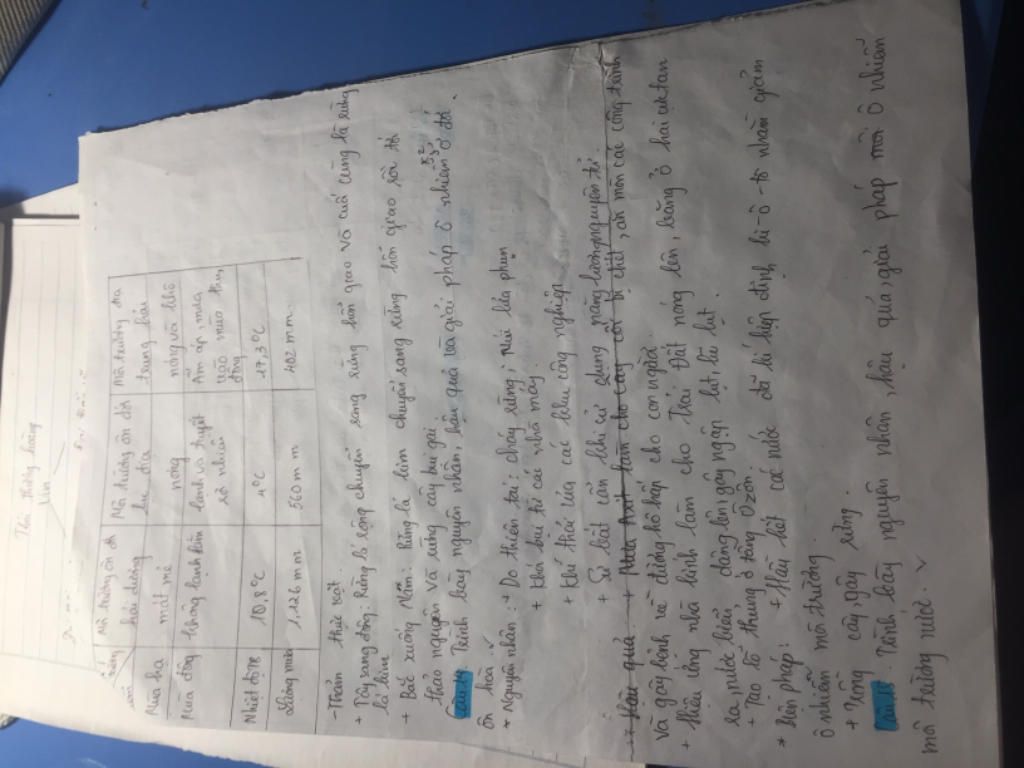 Môi trường ôn đới hải dương | Môi trường ôn đới lục địa | Môi trường địa trung hải
Mùa hạ | mát mẻ | nóng | nóng và khô
Mùa đông | không lạnh lắm | lạnh và tuyết rơi nhiều | Ấm áp, mưa vào mùa thu, đông
Nhiệt độ TB | 10,8°C | 4°C | 17,3°C
Lượng mưa | 1.126 mm | 560 mm | 402 mm
- Thảm thực vật
+ Tây sang đông: Rừng lá rộng chuyển sang rừng hỗn giao và cuối cùng là rừng
lá kim
+ Bắc xuống Nam: Rừng lá kim chuyển sang rừng hỗn giao rồi tới
thảo nguyên và rừng cây bụi gai
Câu 14. Trình bày nguyên nhân, hậu quả và giải pháp ô nhiễm ở đới
ôn hoà
* Nguyên nhân: + Do thiên tai: cháy rừng, núi lửa phun
+ khói bụi từ các nhà máy
+ khí thải của các khu công nghiệp
+ Sự bất cẩn khi sử dụng năng lượng nguyên tử
* Hậu quả: + Mưa Axit làm cho cây cối bị chết, ăn mòn các công trình
và gây bệnh về đường hô hấp cho con người
+ Hiệu ứng nhà kính làm cho Trái Đất nóng lên, băng ở hai cực tan
ra, nước biển dâng lên gây ngập lụt, lũ lụt
+ Tạo lỗ thủng ở tầng Ôzôn.
* Biện pháp: + Hầu hết các nước đã kí hiệp định ki-ô-tô nhằm giảm
ô nhiễm môi trường
+ Trồng cây, gây rừng
Câu 15. Trình bày nguyên nhân, hậu quả, giải pháp mới ô nhiễm
môi trường nước.